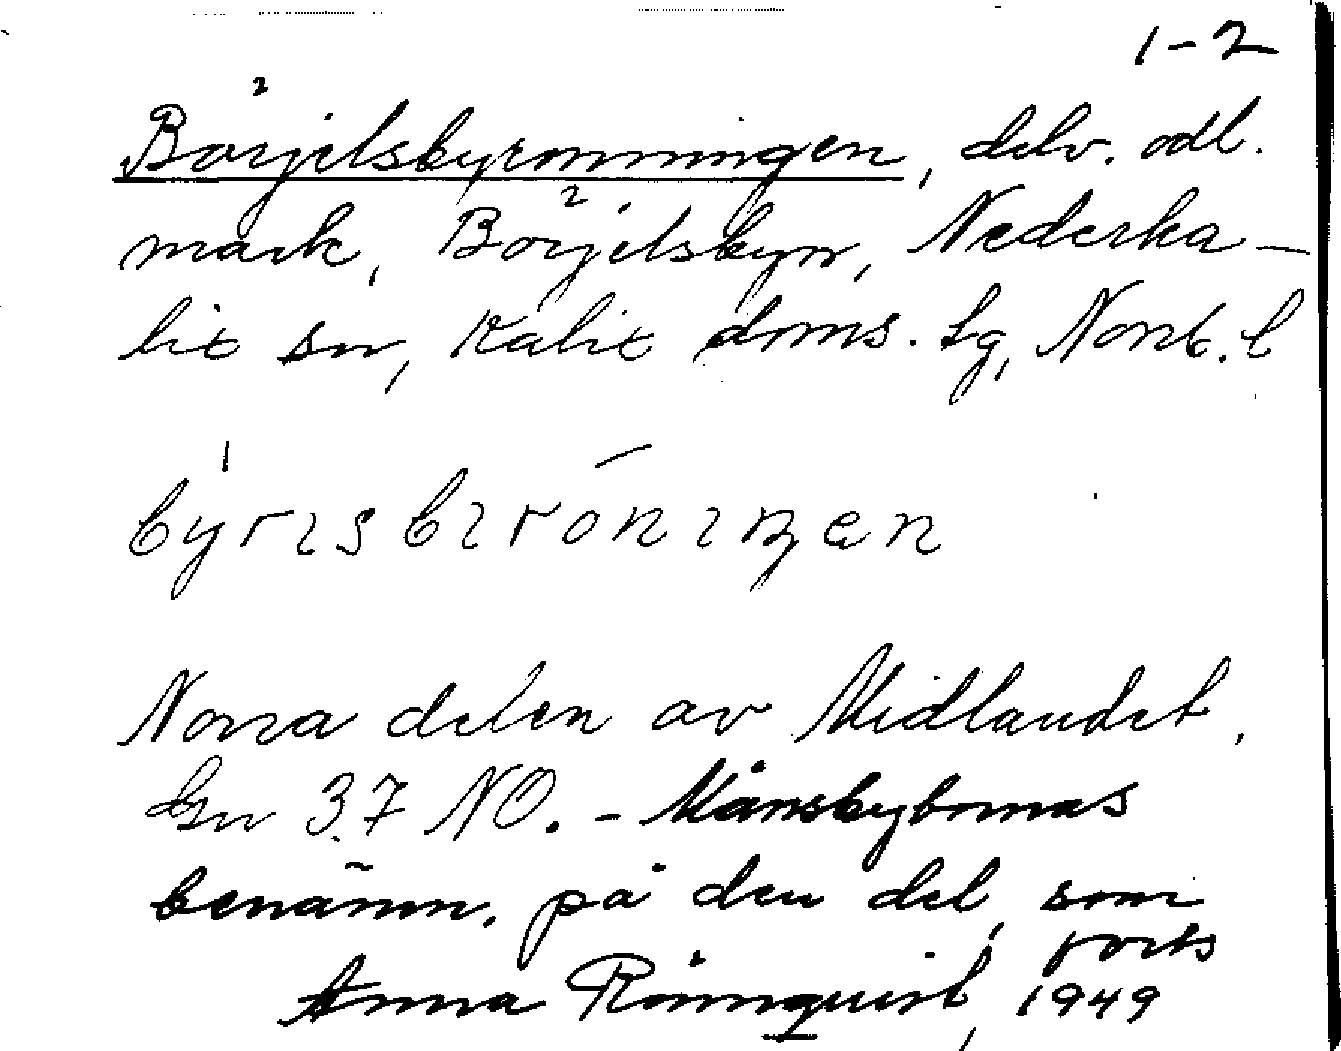 1-2
Börjelsbyrönningen, delv. odl.
mark, Börjelsbyn, Nederka-
lix sn, Kalix doms. lg, Norrb. l
Norra delen av Midlandet.
Gn 37 NO. - Månsbybornas
benämn. på den del, som
forts
Anna Rönnquist, 1949